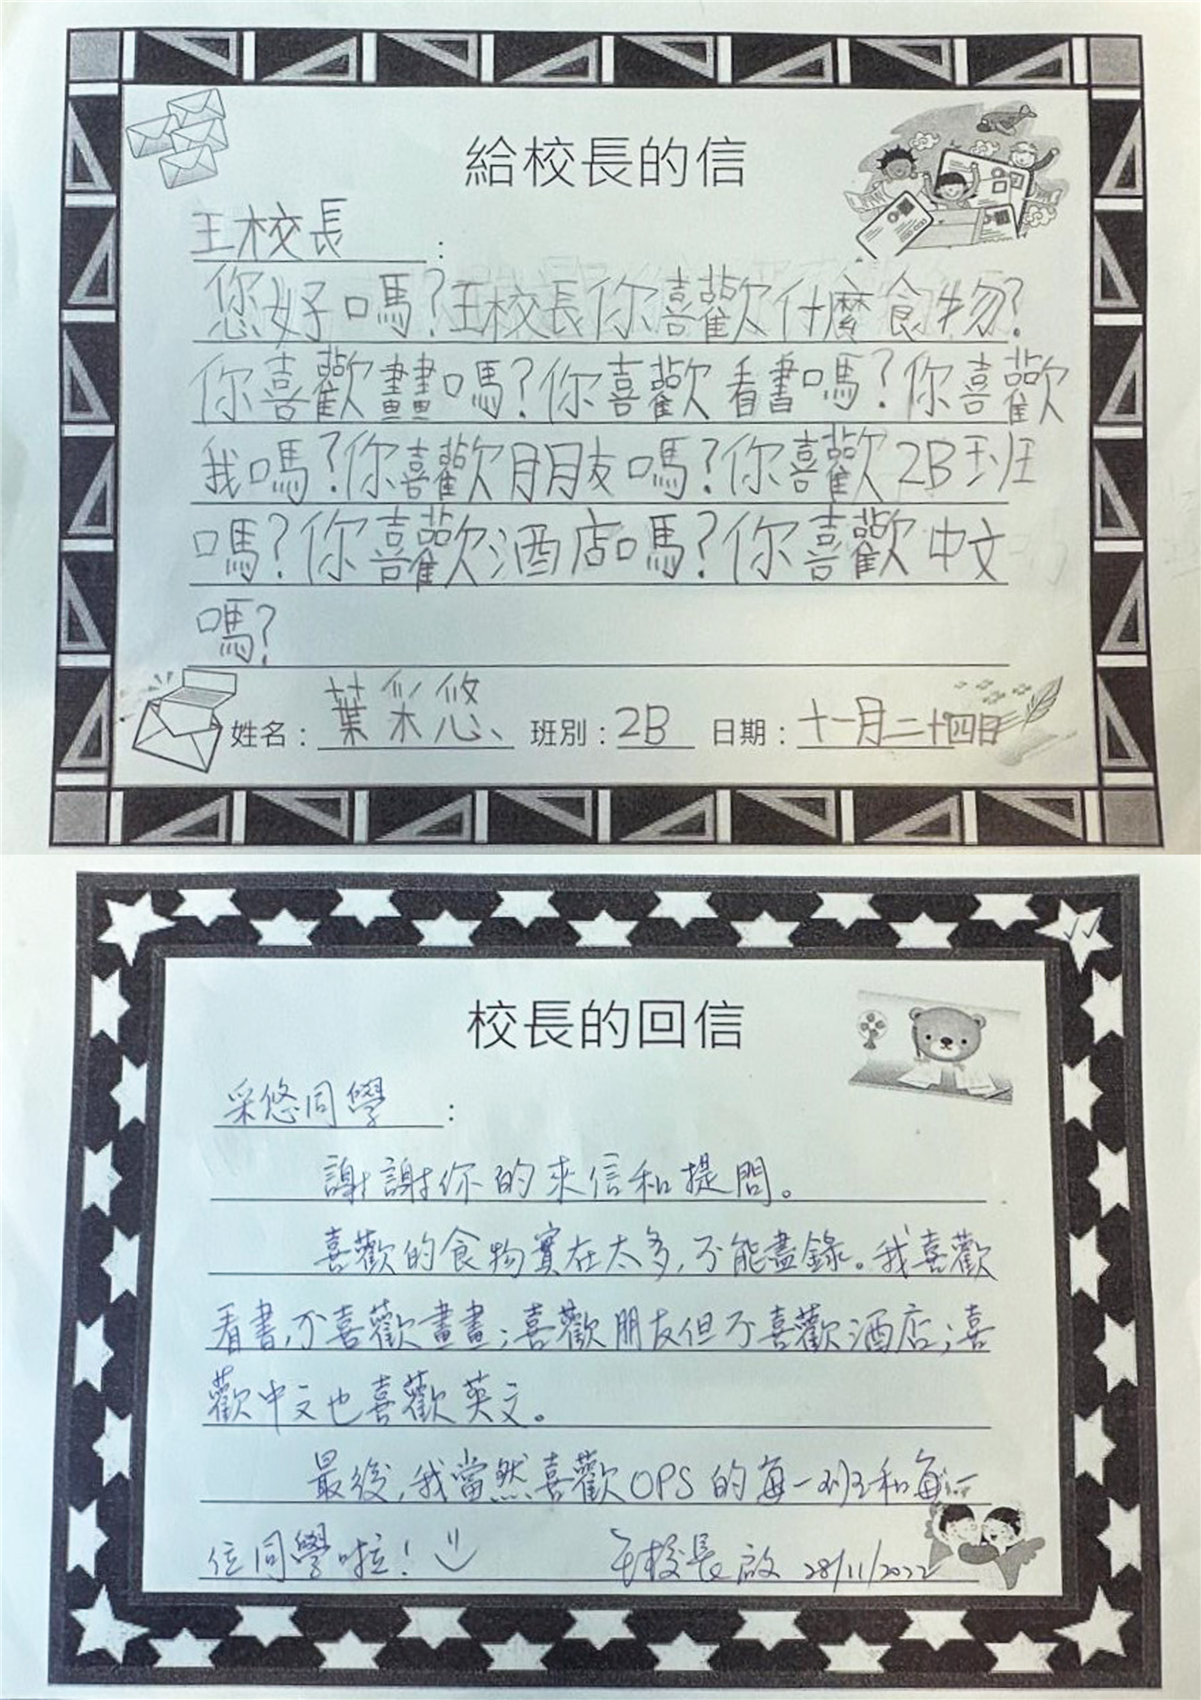 給校長的信
王校長：
您好嗎?王校長你喜歡什麼食物?
你喜歡畫畫嗎?你喜歡看書嗎?你喜歡
我嗎?你喜歡朋友嗎?你喜歡2B班
嗎?你喜歡酒店嗎?你喜歡中文
嗎?
姓名：葉采悠 班別：2B 日期：十一月二十四日
校長的回信
采悠同學：
謝謝你的來信和提問。
喜歡的食物實在太多,不能盡錄。我喜歡
看書,不喜歡畫畫;喜歡朋友但不喜歡酒店;喜
歡中文也喜歡英文。
最後,我當然喜歡OPS的每一班和每一
位同學啦!
王校長啟 28/11/2022